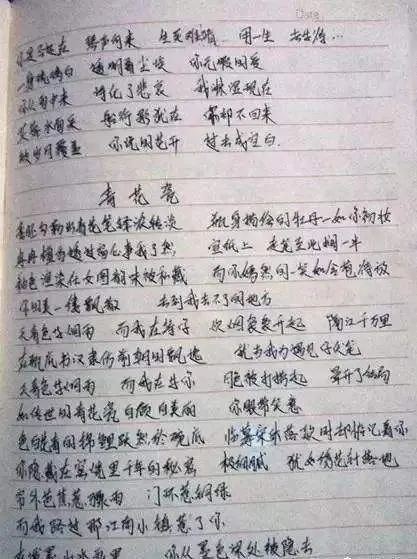 Date
你是否还在 琴声何来 生死难猜 用一生 去等待…
一身琉璃白 透明着尘埃 你无瑕的爱
你从雨中来 诗化了悲哀 我淋湿现在
芙蓉水面采 船行影犹在 你却不回来
被岁月覆盖 你说的花开 过去成空白
青花瓷
素胚勾勒出青花笔锋浓转淡 瓶身描绘的牡丹一如你初妆
冉冉檀香透过窗心事我了然 宣纸上 走笔至此搁一半
釉色渲染仕女图韵味被私藏 而你嫣然的一笑如含苞待放
你的美一缕飘散 去到我去不了的地方
天青色等烟雨 而我在等你 炊烟袅袅升起 隔江千万里
在瓶底书汉隶仿前朝的飘逸 就当我为遇见你伏笔
天青色等烟雨 而我在等你 月色被打捞起 晕开了结局
如传世的青花瓷自顾自美丽 你眼带笑意
色白花青的锦鲤跃然於碗底 临摹宋体落款时却惦记着你
你隐藏在窑烧里千年的秘密 极细腻 犹如绣花针落地
帘外芭蕉惹骤雨 门环惹铜绿
而我路过那江南小镇惹了你
在泼墨山水画里 你从墨色深处被隐去